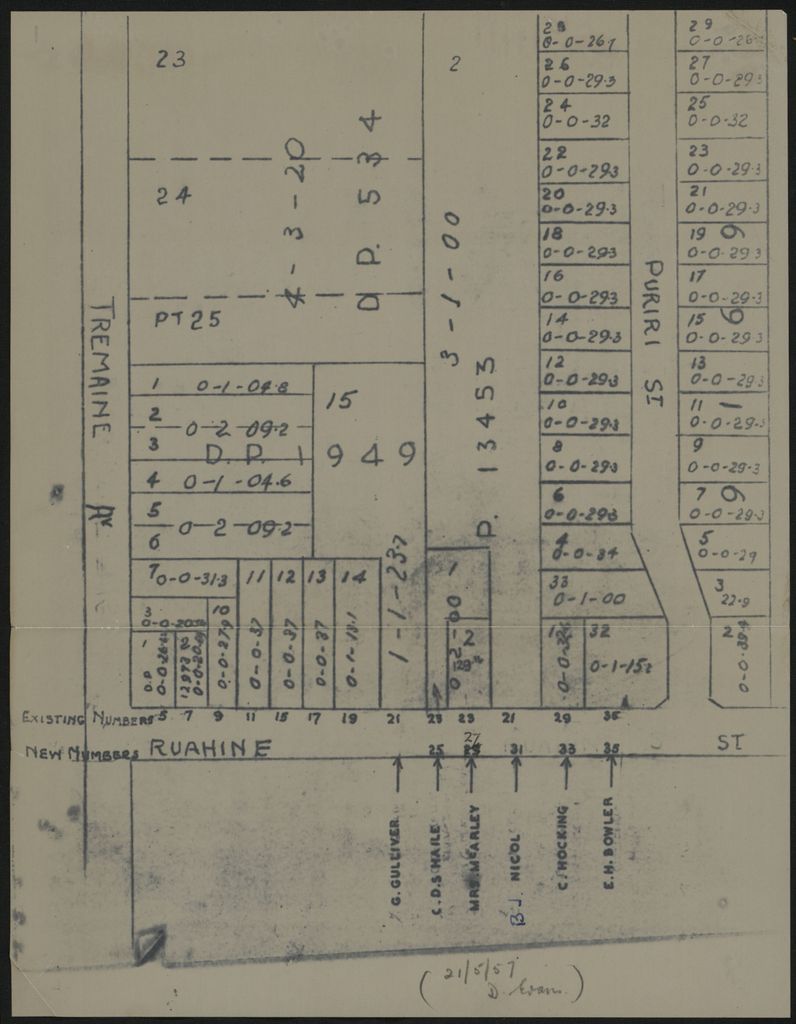 23
24
PT 25
4-3-20
D P. 534
2
3-1-00
P. 13453
28
0-0-26.1
26
0-0-29.3
24
0-0-32
22
0-0-293
20
0-0-29.3
18
0-0-293
16
0-0-293
14
0-0-29.3
12
0-0-29.3
10
0-0-29.3
8
0-0-29.3
6
0-0-29.3
4
0-0-34
33
0-1-00
32
0-1-15
PURIRI ST
29
27
0-0-29.3
25
0-0-32
23
0-0-29.3
21
0-0-29.3
19
0-0-29.3
17
0-0-29.3
15
0-0-29.3
13
0-0-29.3
11
0-0-29.3
9
0-0-29.3
7
0-0-29.3
9 1 6 6
5
0-0-29
3
22.9
2
TREMAINE AV
1 0-1-04.8
2
0-2-09.2
3
D. P. 1949
4 0-1-04.6
5
0-2-09.2
6
15
1-1-23.7
7 0-0-31.3
11
0-0-37
12
0-0-37
13
0-0-37
14
0-1-13.1
10
0-0-27.9
3
0-0-20.9
1
D.P
12973
1
0-2-00
2
EXISTING NUMBERS 5 7 9 11 15 17 19 21 23 23 21 29 35
NEW NUMBERS 25 27 31 33 35
RUAHINE ST
G. GULLIVER
C.D.S HAILE
MRS McARLEY
B.J. NICOL
C. HOCKING
E.H. BOWLER
(21/5/57
D. Evans)